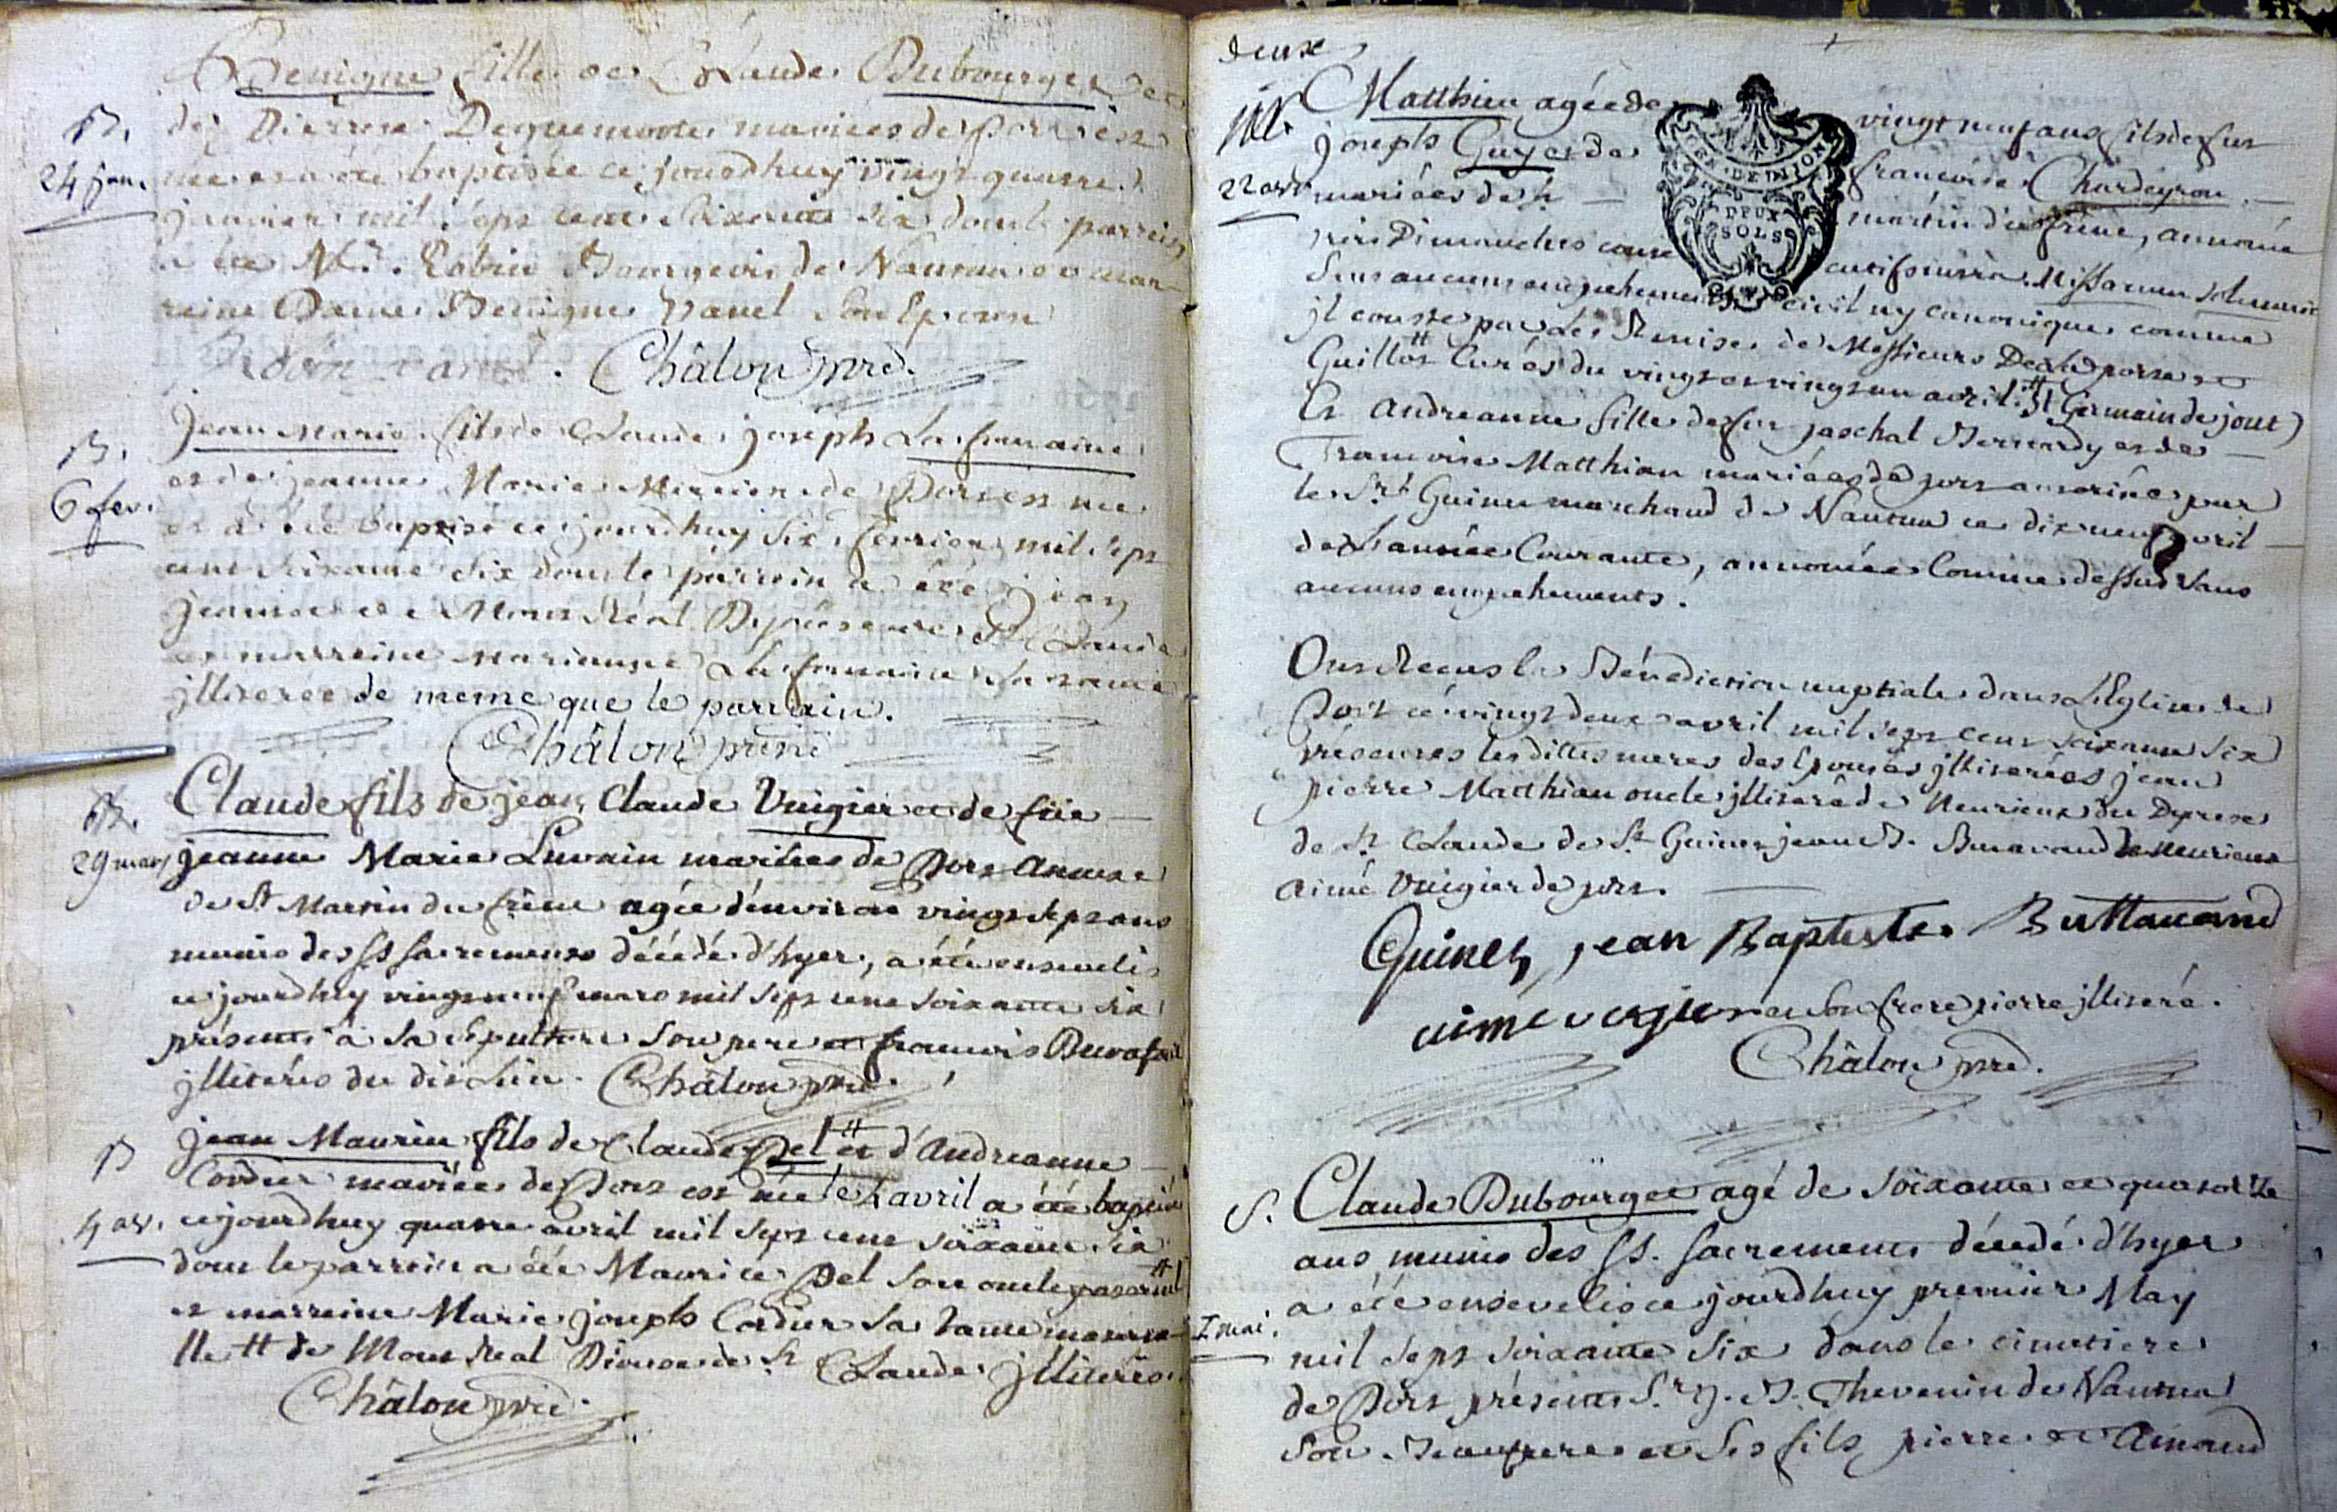 Benigne fille de Claude Dubourget et
B. de Pierrine mariées de Port est
24 jan. née et a été baptisée ce jourdhuy vingt quatre
janvier mil sept cent soixante six dont le parrein
a été Mr. Robin Bourgeois de Nantua et mar-
reine Dame Benigne Vanel son Epouse
Robin Vanel. Châlon prê.
Jean Marie fils de Claude joseph La fontaine
B. et de jeanne Marie de Port est né
6 fev. et a été baptisé ce jourdhuy six fevrier mil sept
cent soixante six dont le parrein a été
de Mont Réal Diocese de St Claude
et marreine Marianne La fontaine sa tante
jlliterée de meme que le parrain.
Châlon prêtre
Claude fils de jean Claude Vuigier et de füe
29 mars jeanne Marie mariées de Port Annexe
de St Martin du frêne agée d'environ vingt sept ans
munie des SS sacrements décédé d'hyer, a été enseveli
ce jourdhuy vingt neuf mars mil sept cent soixante six
présents à sa sépulture son pere et francois
jlliterés du dit Lieu. Châlon prê.
B jean Maurice fils de Claude Pel et d'Andreanne
Cordier mariées de Port est né le 4 avril a été baptisé
4 av. ce jourdhuy quatre avril mil sept cent soixante six
dont le parrein a été Maurice Pel son oncle paternel
et marreine Marie joseph Cordier sa tante materne-
lle de Mont Real Diocese de St Claude jlliterés.
Châlon prê.
deux
M. Matthieu agée de vingt neuf ans fils de feu
joseph Guy et de francoise Chardeyron
22 avr mariées de St martin du frêne, annoncé
trois Dimanches consecutifs missarum solemnia
sans aucuns empechements civil ny canonique comme
jl conste par les Remises de Messieurs Delaporte et
Guillot Curés du vingt et vingt un avril (St Germain de joux)
Et Andreanne fille de feu paschal Bernardy et de
Francoise Matthian mariées de port autorisée par
le Srt Guinet marchand de Nantua ce dix neuf avril
de L'année Courante, annoncée Comme dessus sans
aucuns empechements.
Ont Recus la Bénédiction nuptiale dans L'Eglise de
Port ce vingt deux avril mil sept cent soixante six
présentes les dittes meres des Epouses jlliterées jean
pierre Matthian oncle jlliteré de Neurieux du Diocese
de St Claude de Sr Guinet jean B. Buttavand de Neurieux
aimé Vuigier de port.
Guinet, jean Baptiste Buttavand
aimé vugier et son frere pierre jlliteré.
Châlon prê.
S. Claude Dubourget agé de soixante et quatorze
ans munis des SS. sacrements décedé d'hyer
a été enseveli ce jourdhuy premier May
1 mai. mil sept soixante six dans le cimetiere
de Port présents Sr J. B. Thevenin de Nantua
son Beaufrere et ses fils pierre et Aimand
GEN. DE DIJON
DEUX
SOLS